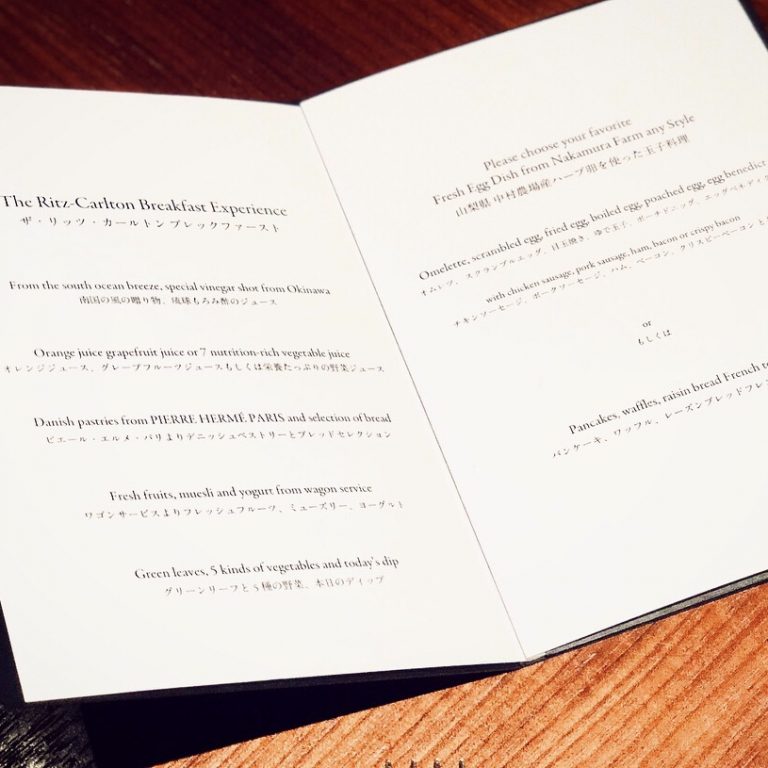 The Ritz-Carlton Breakfast Experience
ザ・リッツ・カールトン ブレックファースト
From the south ocean breeze, special vinegar shot from Okinawa
南国の風の贈り物、琉球もろみ酢のジュース
Orange juice grapefruit juice or 7 nutrition-rich vegetable juice
オレンジジュース、グレープフルーツジュースもしくは栄養たっぷりの野菜ジュース
Danish pastries from PIERRE HERMÉ PARIS and selection of bread
ピエール・エルメ・パリよりデニッシュペストリーとブレッドセレクション
Fresh fruits, muesli and yogurt from wagon service
ワゴンサービスよりフレッシュフルーツ、ミューズリー、ヨーグルト
Green leaves, 5 kinds of vegetables and today's dip
グリーンリーフと5種の野菜、本日のディップ
Please choose your favorite
Fresh Egg Dish from Nakamura Farm any Style
山梨県 中村農場産ハーブ卵を使った玉子料理
Omelette, scrambled egg, fried egg, boiled egg, poached egg, egg benedict
オムレツ、スクランブルエッグ、目玉焼き、ゆで玉子、ポーチドエッグ、エッグベネディク
with chicken sausage, pork sausage, ham, bacon or crispy bacon
チキンソーセージ、ポークソーセージ、ハム、ベーコン、クリスピーベーコン と
or
もしくは
Pancakes, waffles, raisin bread French
パンケーキ、ワッフル、レーズンブレッドフレン